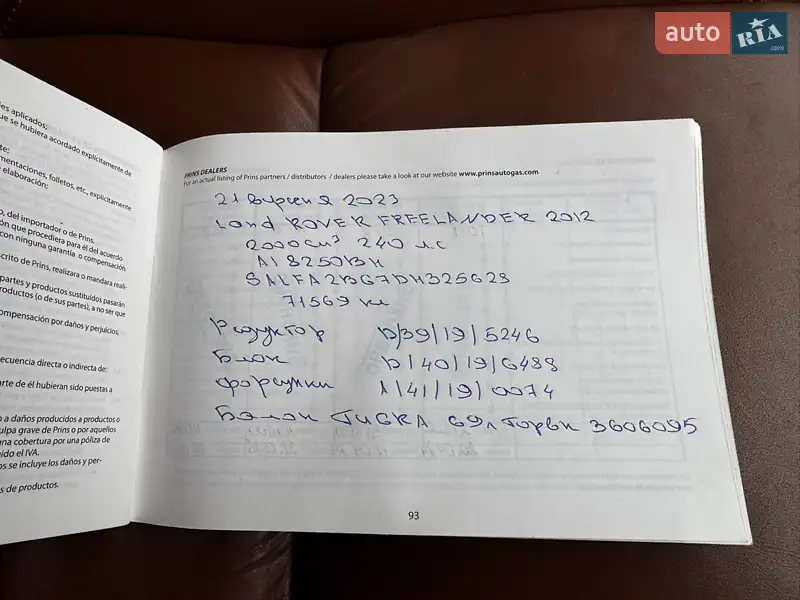 auto RIA .com
es aplicados;
ue se hubiera acordado explícitamente de
te:
mentaciones, folletos, etc., explícitamente
elaboración;
o, del importador o de Prins.
ón que procediera para él del acuerdo
con ninguna garantía o compensación
scrito de Prins, realizara o mandara reali-
partes y productos sustituidos pasarán
roductos (o de sus partes), a no ser que
ompensación por daños y perjuicios,
ecuencia directa o indirecta de:
arte de él hubieran sido puestas a
o a daños producidos a productos o
ulpa grave de Prins o por aquellos
una cobertura por una póliza de
ido el IVA.
os se incluye los daños y per-
s de productos.
PRINS DEALERS
For an actual listing of Prins partners / distributors / dealers please take a look at our website www.prinsautogas.com
21 вурсня 2023
Land ROVER FREELANDER 2012
2000см³ 240 лс
AI8250BH
SALFA2BG7DH325628
71569 км
Редуктор D/39/19/5246
Блок D/40/19/6488
форсунки A/41/19/0074
Балон TUGRA 69л Торви 3606095
93